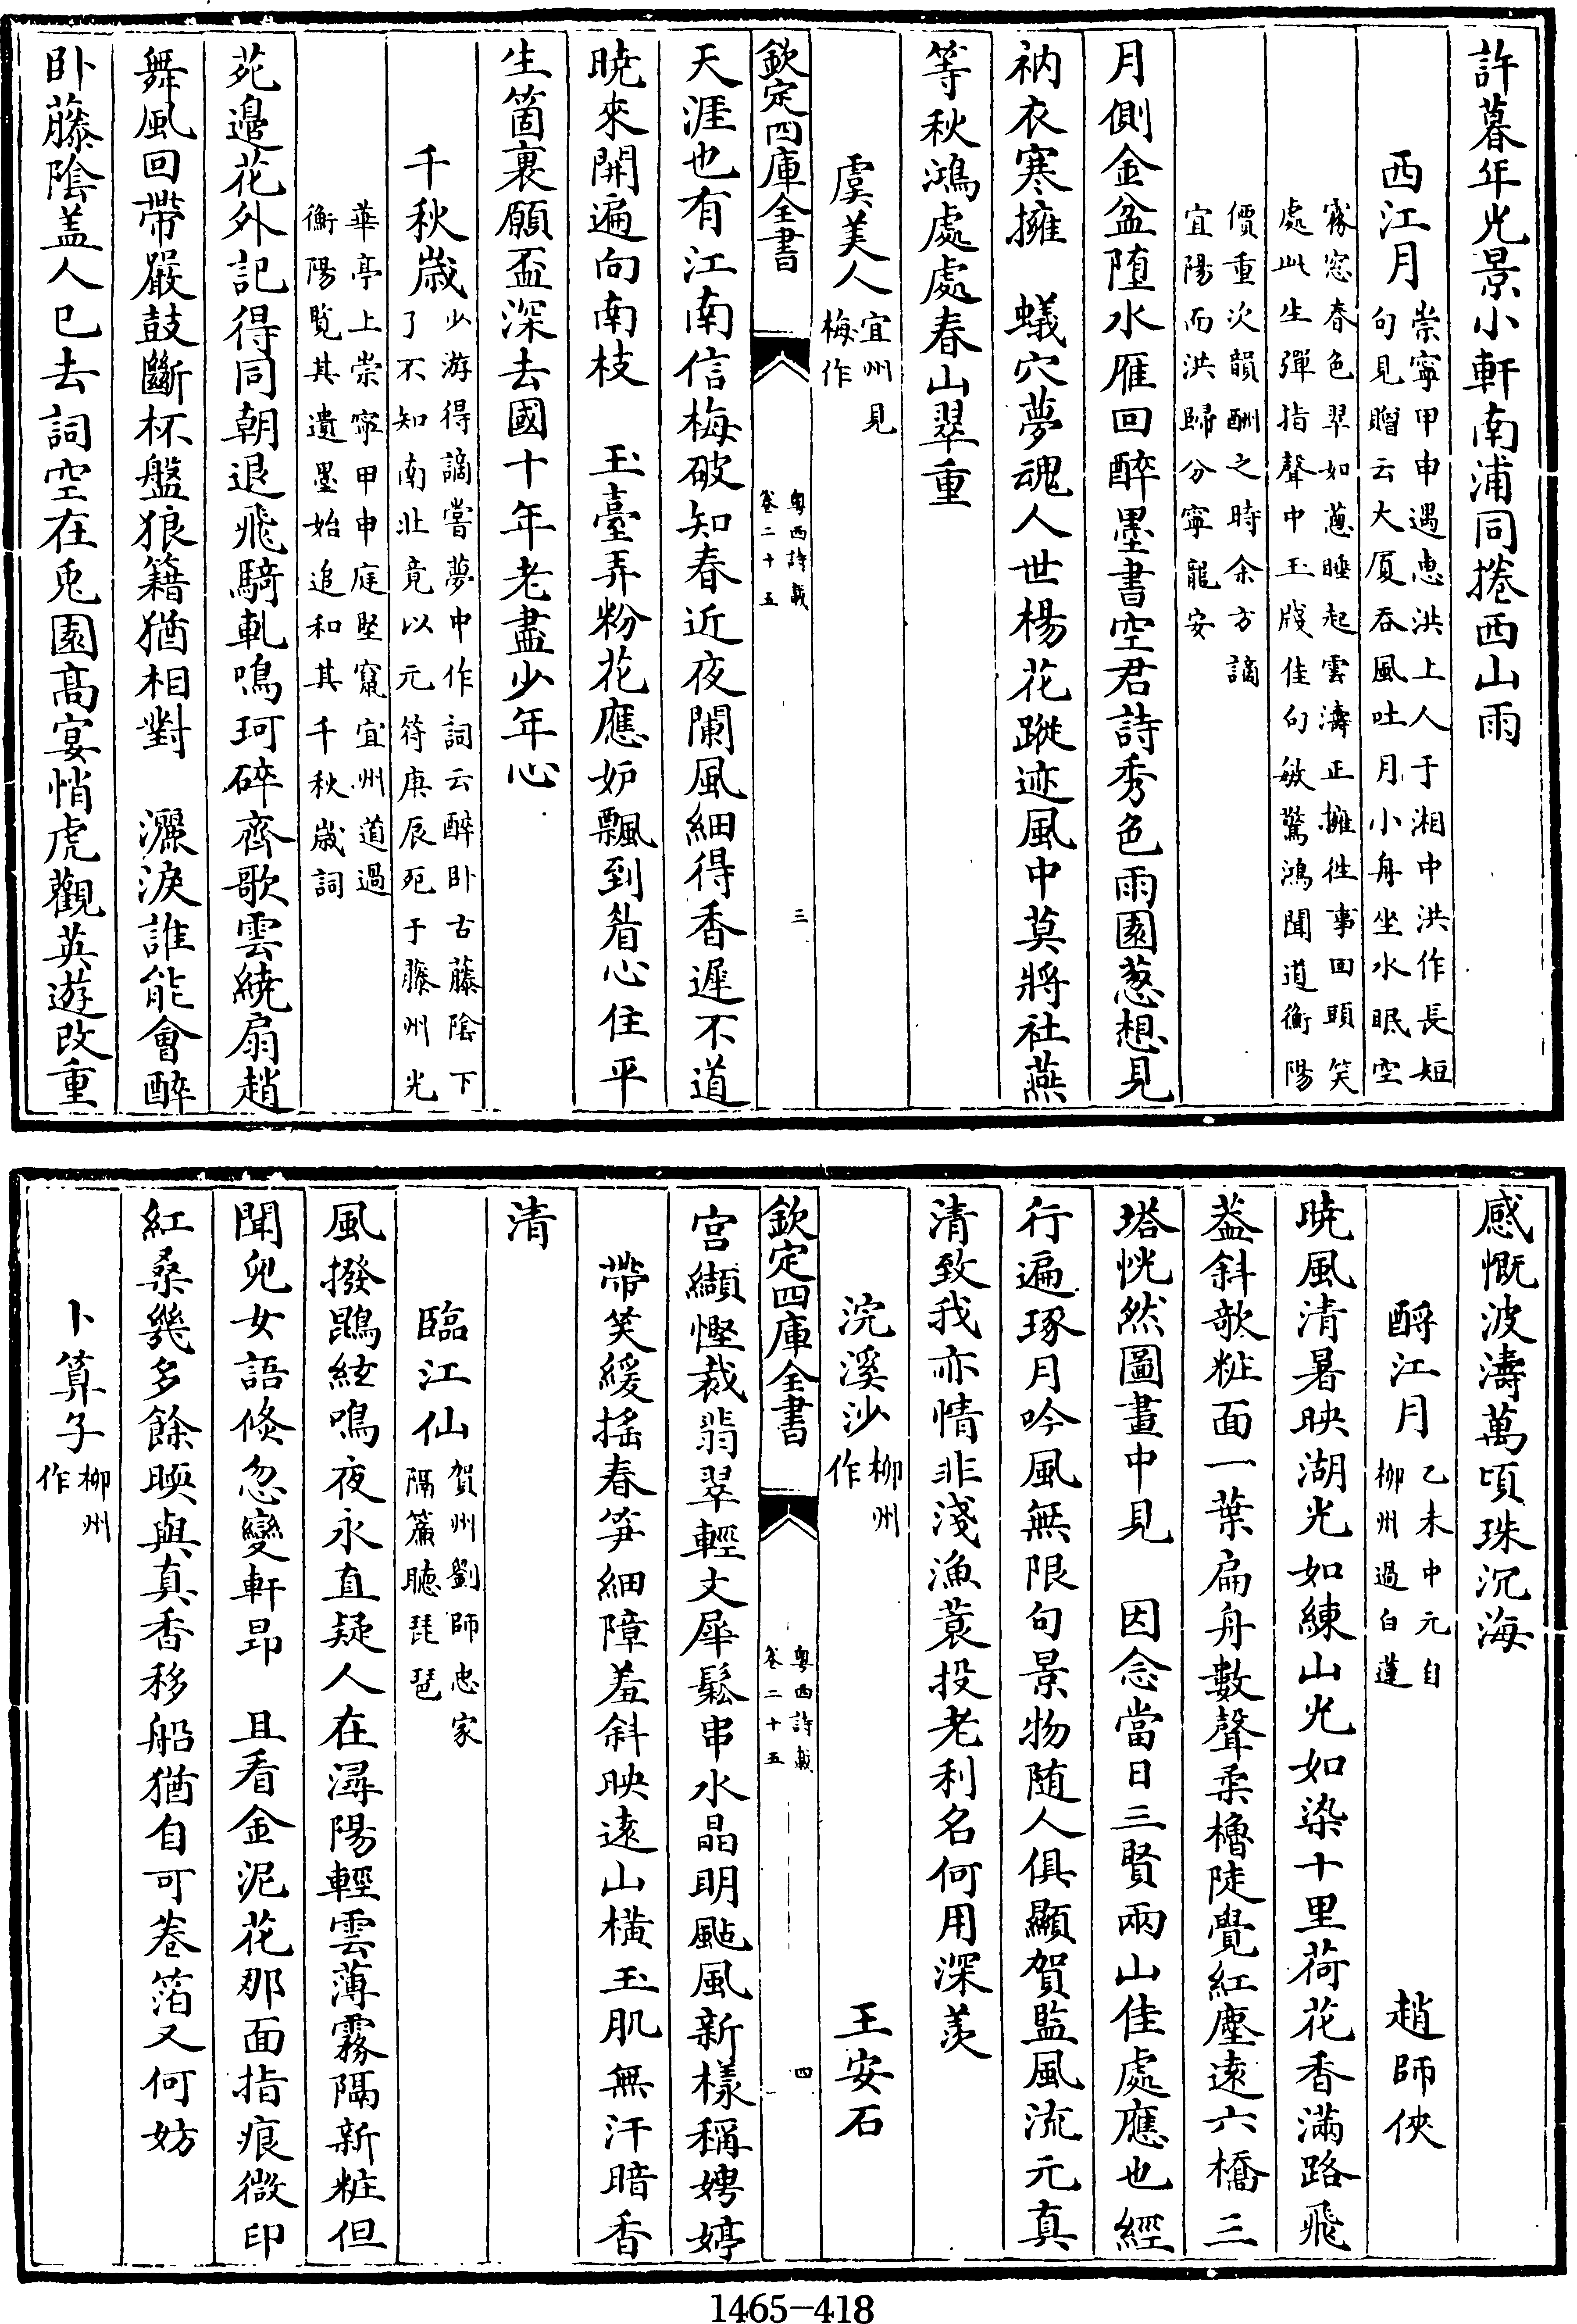 許暮年光景小軒南浦同捲西山雨
西江月
崇寧甲申遇惠洪上人于湘中洪作長短
句見贈云大厦吞風吐月小舟坐水眠空
霧窓春色翠如葱睡起雲濤正擁徃事回頭笑
處此生彈指聲中玉牋佳句敏驚鴻聞道衡陽
價重次韻酬之時余方謫
宜陽而洪歸分寧龍安
月側金盆墮水雁回醉墨書空君詩秀色雨園葱想見
衲衣寒擁　蟻穴夢魂人世楊花蹤迹風中莫將社燕
等秋鴻處處春山翠重
虞美人
宜州見
梅作
欽定四庫全書
粤西詩載
卷二十五
三
天涯也有江南信梅破知春近夜闌風細得香遲不道
曉來開遍向南枝　玉臺弄粉花應妒飄到眉心住平
生箇裏願盃深去國十年老盡少年心
千秋歲
少游得謫嘗夢中作詞云醉卧古藤陰下
了不知南北竟以元符庚辰死于藤州光
華亭上崇寧甲申庭堅竄宜州道過
衡陽覽其遺墨始追和其千秋歲詞
苑邊花外記得同朝退飛騎軋鳴珂碎齊歌雲繞扇趙
舞風回帶嚴鼓斷杯盤狼籍猶相對　灑淚誰能會醉
卧藤陰盖人已去詞空在兎園高宴悄虎觀英遊改重
感慨波濤萬頃珠沉海
酹江月
乙未中元自
柳州過白蓮
趙師俠
曉風清暑映湖光如練山光如染十里荷花香滿路飛
葢斜欹粧面一葉扁舟數聲柔櫓陡覺紅塵逺六橋三
塔恍然圖畫中見　因念當日三賢兩山佳處應也經
行遍琢月吟風無限句景物随人俱顯賀監風流元真
清致我亦情非淺漁蓑投老利名何用深羡
浣溪沙
柳州
作
王安石
欽定四庫全書
粤西詩載
卷二十五
四
宫纈慳裁翡翠輕文犀鬆串水晶明颭風新樣稱娉婷
帶笑緩摇春筍細障羞斜映逺山横玉肌無汗暗香
清
臨江仙
賀州劉師忠家
隔簾聽琵琶
風撥鵾絃鳴夜永直疑人在潯陽輕雲薄霧隔新粧但
聞兒女語倐忽變軒昂　且看金泥花那面指痕微印
紅桑幾多餘暎與真香移船猶自可卷箔又何妨
卜算子
柳州
作
1465-418